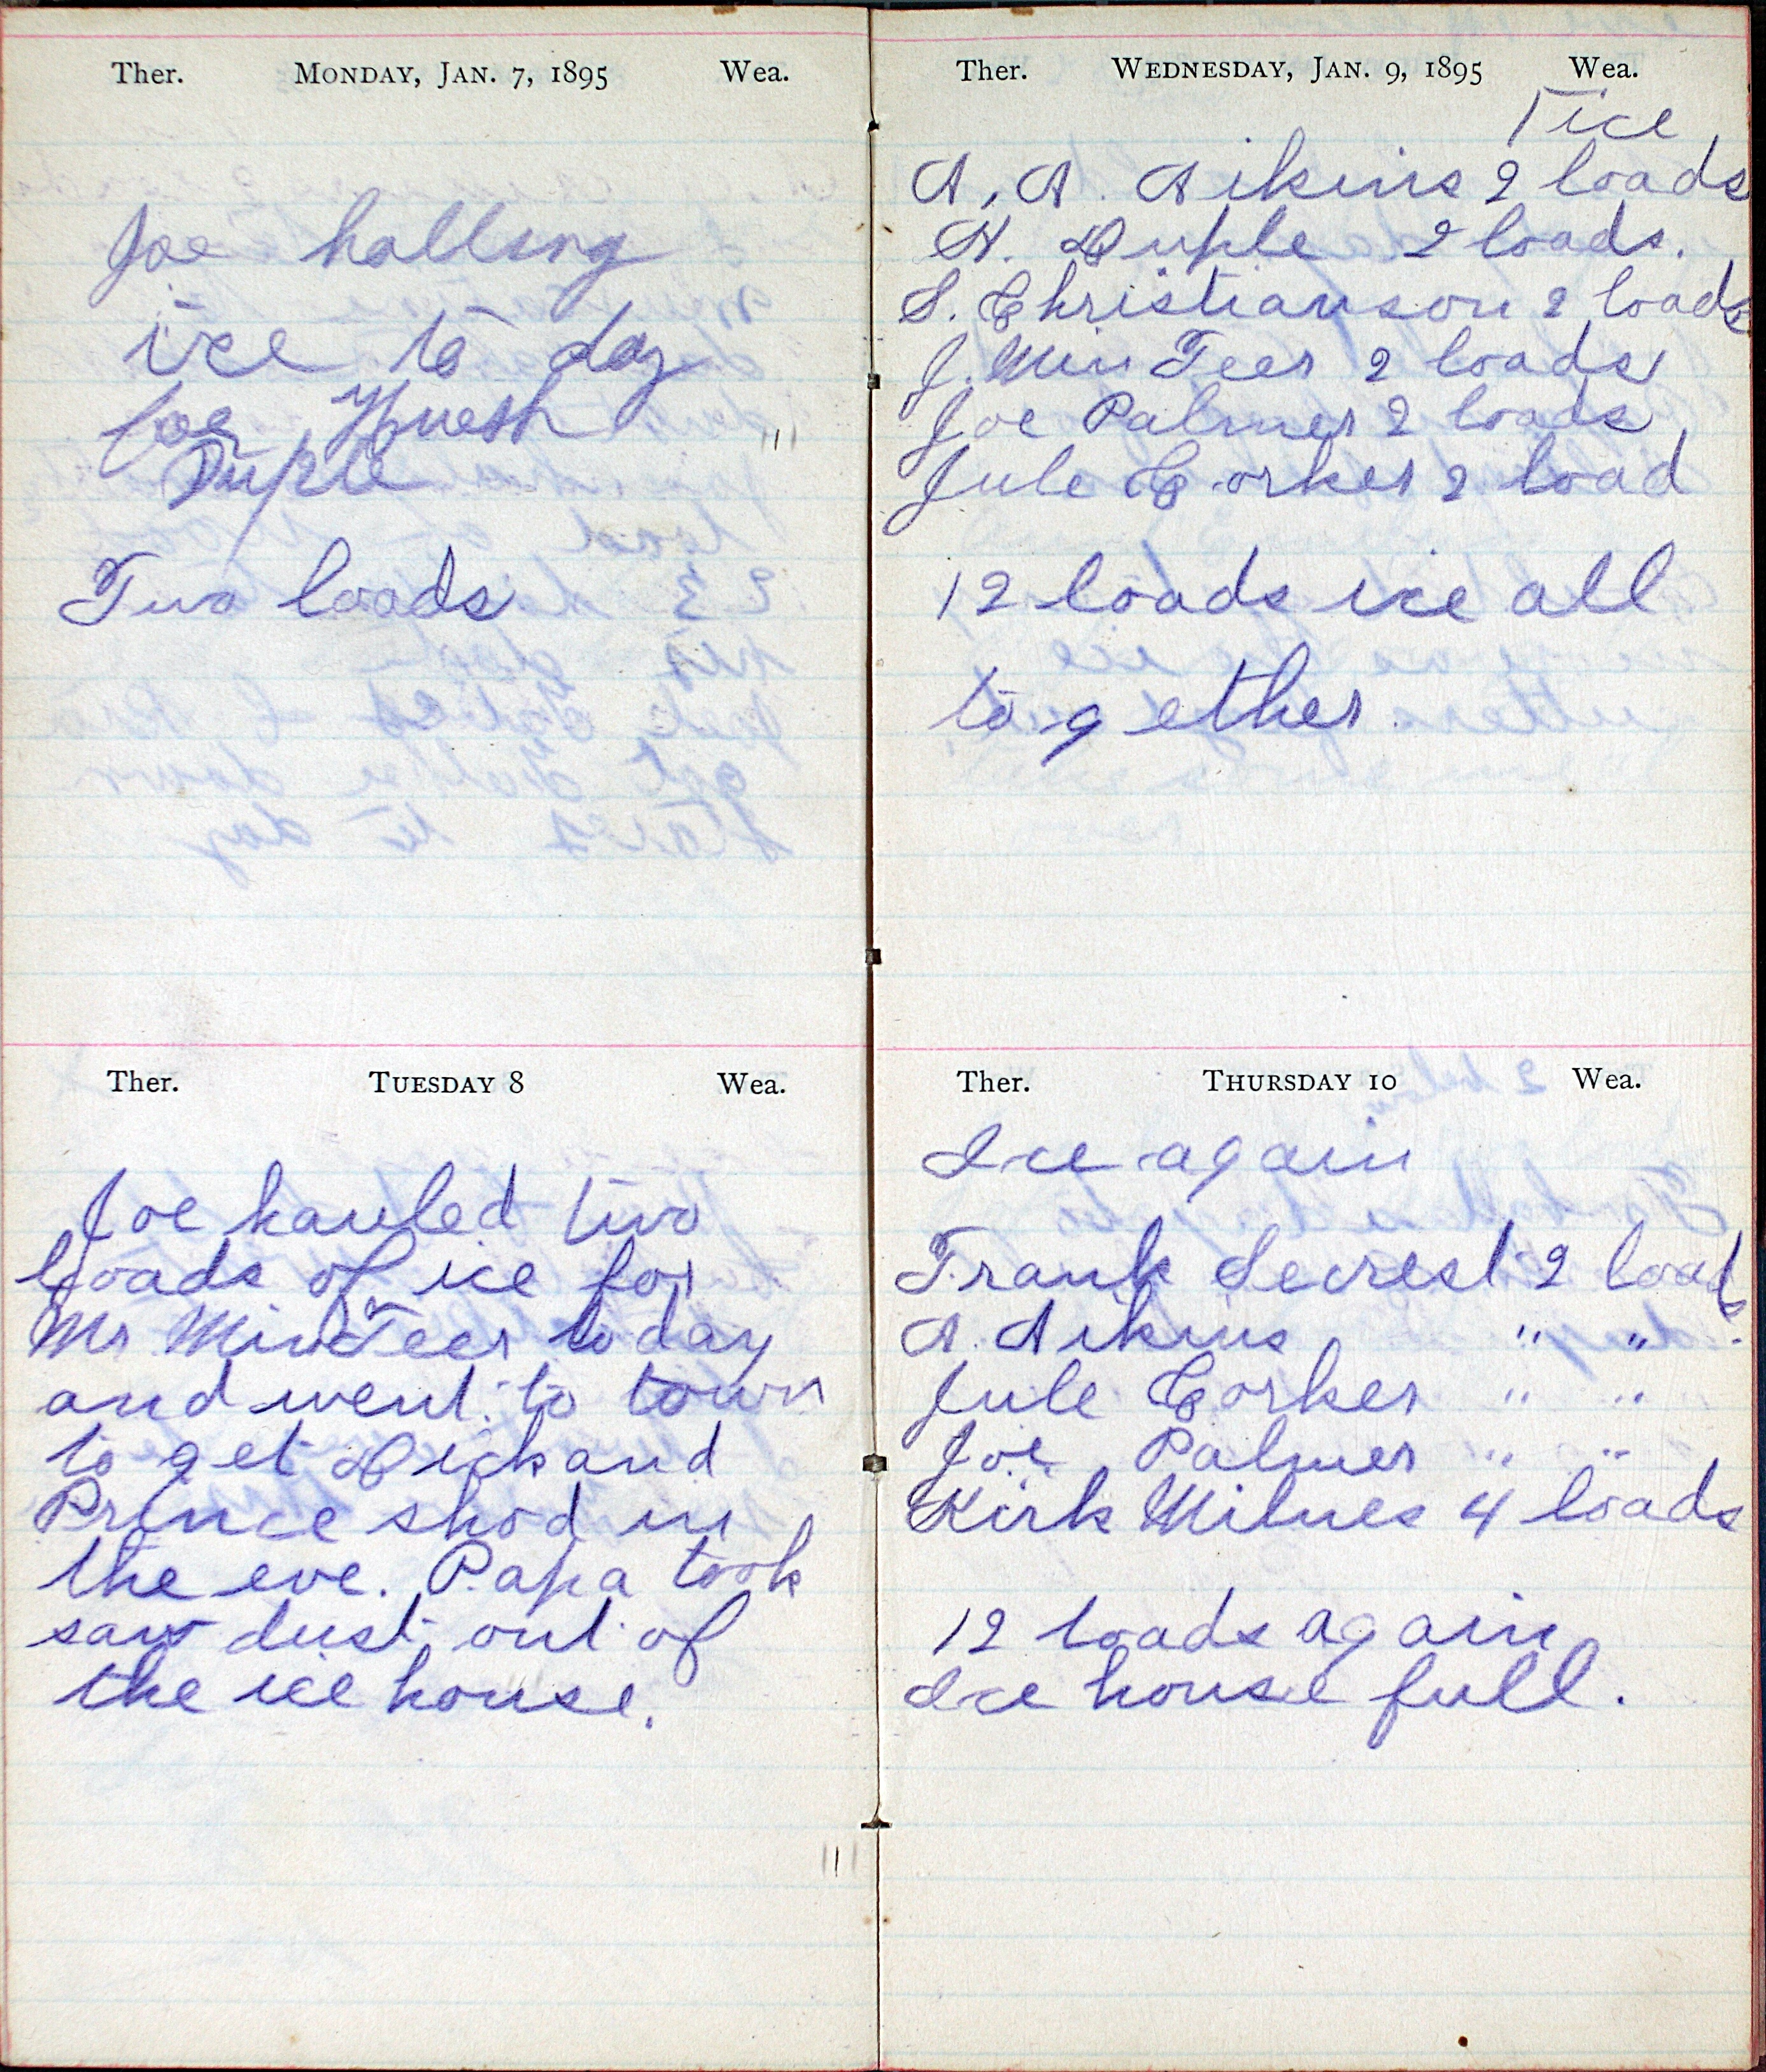 Ther. MONDAY, JAN. 7, 1895 Wea.
Joe halling
ice to day
for
Duple
Two loads
Ther. TUESDAY 8 Wea.
Joe hauled two
loads of ice for
Mr MinTeer today
and went to town
to get Dick and
Prince shod in
the eve. Papa took
saw dust out of
the ice house.
Ther. WEDNESDAY, JAN. 9, 1895 Wea.
ice
A. A. Aikins 2 loads
H. Duple 2 loads.
S. Christianson 2 loads
J. MinTeer 2 loads
Joe Palmer 2 loads
Jule Corker 2 load
12 loads ice all
together.
Ther. THURSDAY 10 Wea.
Ice again
Frank Secrest 2 loads.
A. Aikins " "
Jule Corker " "
Joe Palmer " "
Kirk Milnes 4 loads
12 loads again
Ice house full.